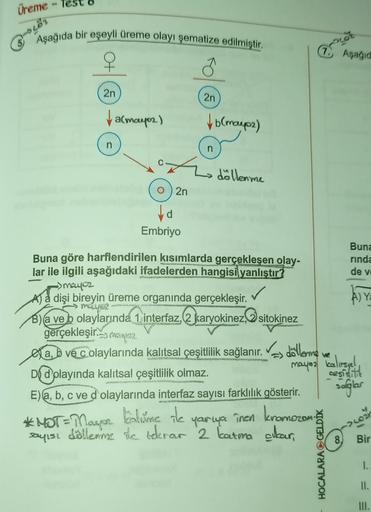 Üreme - Test 6
5. Aşağıda bir eşeyli üreme olayı şematize edilmiştir.
♀ ♂
2n 2n
a(mayoz) b(mayoz)
n n
c → döllenme
2n
d
Embriyo
Buna göre harflendirilen kısımlarda gerçekleşen olay-
lar ile ilgili aşağıdaki ifadelerden hangisi yanlıştır?
→mayoz
A) a dişi bireyin üreme organında gerçekleşir. ✓
→ mayoz
B) a ve b olaylarında 1 interfaz, 2 karyokinez, 2 sitokinez
gerçekleşir. ⇒ mayoz
C) a, b ve c olaylarında kalıtsal çeşitlilik sağlanır. ✓ ⇒ döllenme ve
mayoz kalıtsal
çeşitlilik
sağlar
D) d olayında kalıtsal çeşitlilik olmaz.
E) a, b, c ve d olaylarında interfaz sayısı farklılık gösterir.
* NOT = Mayoz bölüme ile yarıya inen kromozom
sayısı döllenme ile tekrar 2 katına çıkar,
HOCALARA GELDİK
7. Aşağıd
Buna
rında
de ve
A) Ya
8. Bir
I.
II.
III.